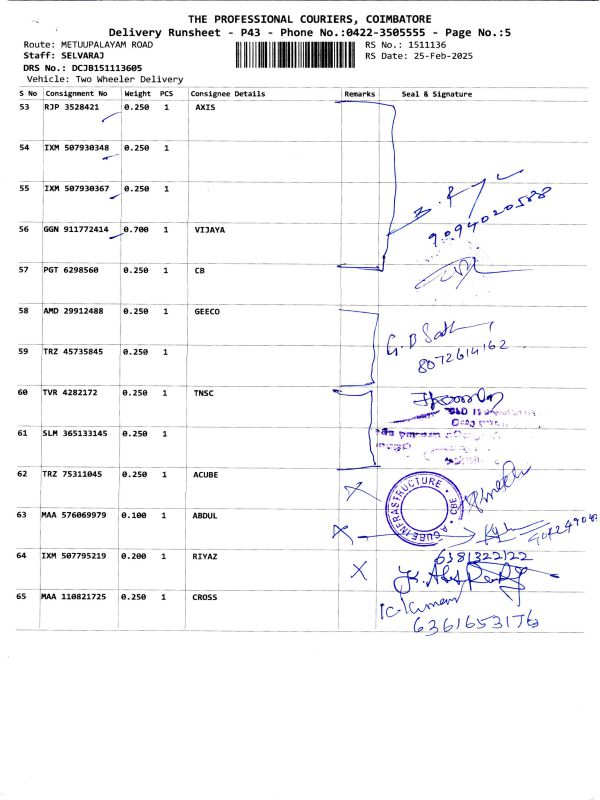 THE PROFESSIONAL COURIERS, COIMBATORE
Delivery Runsheet - P43 - Phone No.:0422-3505555 - Page No.:5
Route: METUUPALAYAM ROAD RS No.: 1511136
Staff: SELVARAJ RS Date: 25-Feb-2025
DRS No.: DCJB151113605
Vehicle: Two Wheeler Delivery
S No Consignment No Weight PCS Consignee Details Remarks Seal & Signature
53 RJP 3528421 0.250 1 AXIS
54 IXM 507930348 0.250 1
55 IXM 507930367 0.250 1
56 GGN 911772414 0.700 1 VIJAYA
9094020588
57 PGT 6298560 0.250 1 CB
58 AMD 29912488 0.250 1 GEECO
59 TRZ 45735845 0.250 1
8072614162
60 TVR 4282172 0.250 1 TNSC
61 SLM 365133145 0.250 1
62 TRZ 75311045 0.250 1 ACUBE
ACUBE INFRASTRUCTURE CBE
63 MAA 576069979 0.100 1 ABDUL
64 IXM 507795219 0.200 1 RIYAZ
6381322122
65 MAA 110821725 0.250 1 CROSS
K. Kumar
6361653176